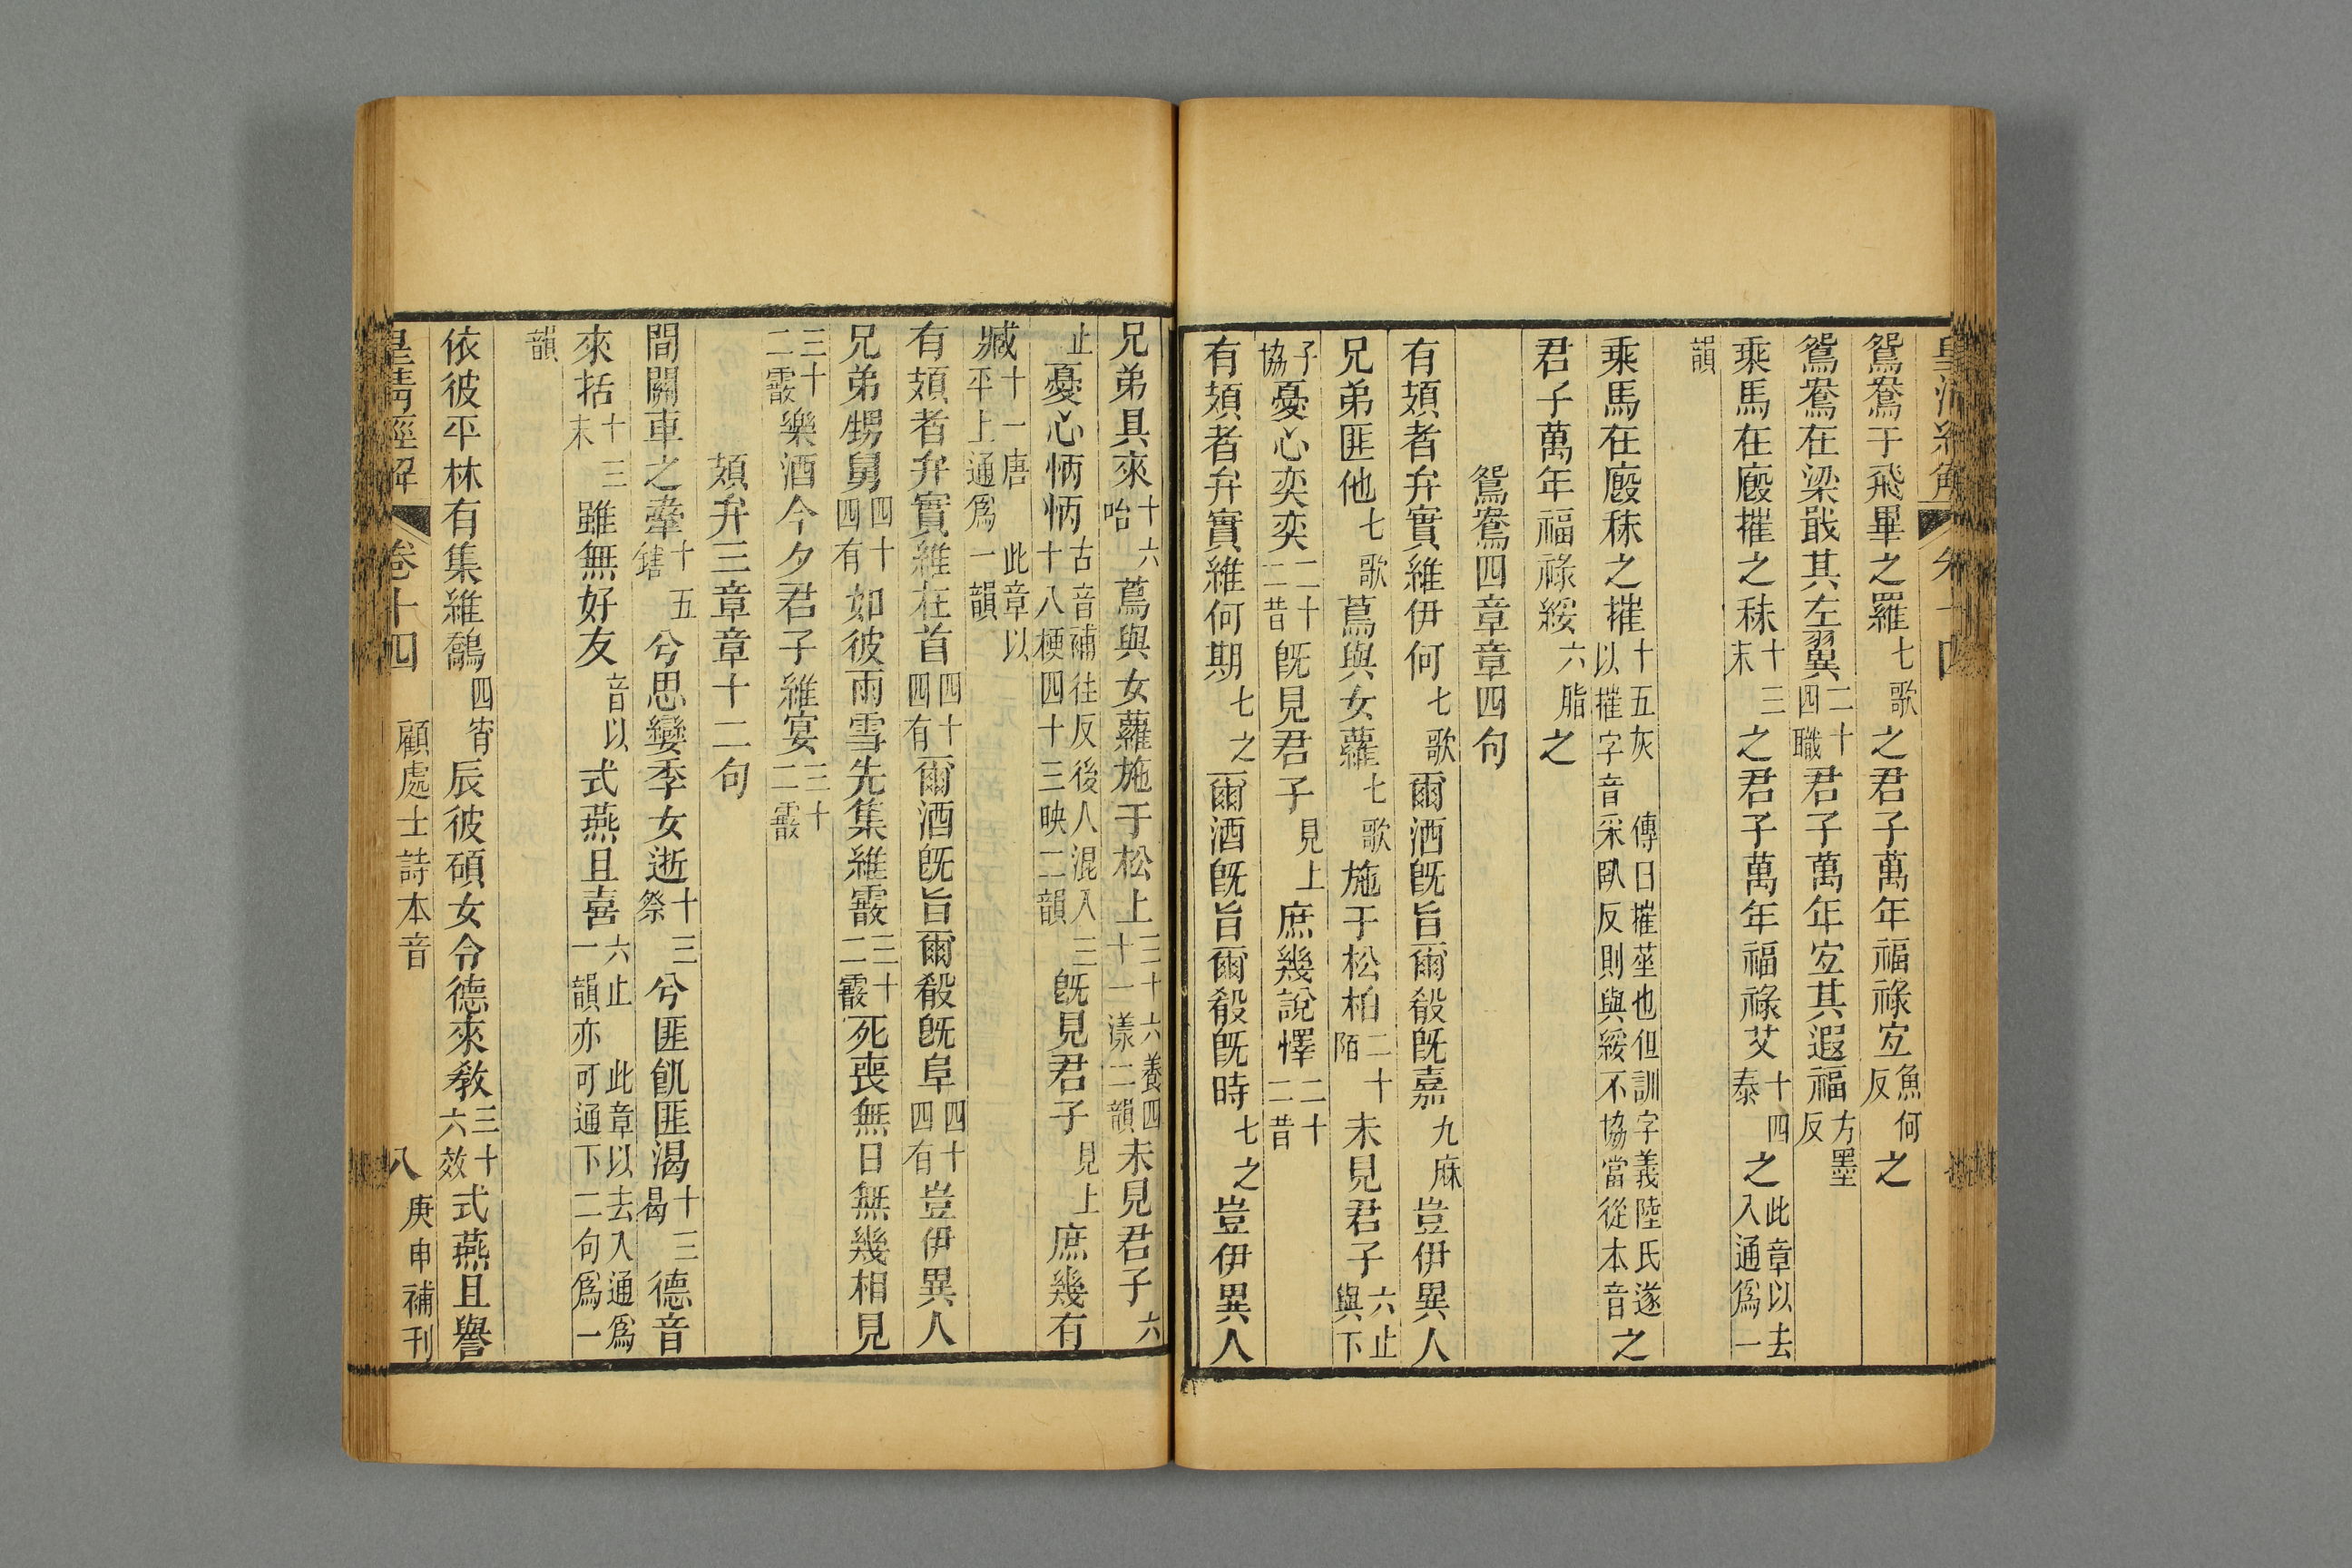 皇清經解 卷十四
鴛鴦于飛畢之羅七歌之君子萬年福祿宐魚何反之
鴛鴦在梁戢其左翼二十四職君子萬年宐其遐福方墨反
乘馬在廄摧之秣十三末之君子萬年福祿艾十四泰之此章以去入通爲一
韻
乘馬在廄秣之摧十五灰 傳曰摧莝也但訓字義陸氏遂以摧字音采臥反則與綏不協當從本音之
君子萬年福祿綏六脂之
鴛鴦四章章四句
有頍者弁實維伊何七歌爾酒旣旨爾殽旣嘉九麻豈伊異人
兄弟匪他七歌蔦與女蘿七歌施于松柏二十陌未見君子六止與下
子協憂心奕奕二十二昔旣見君子見上庶幾說懌二十二昔
有頍者弁實維何期七之爾酒旣旨爾殽旣時七之豈伊異人
兄弟具來十六咍蔦與女蘿施于松上三十六養四十一漾二韻未見君子六
止憂心怲怲古音補往反後人混入三十八梗四十三映二韻旣見君子見上庶幾有
臧十一唐 此章以平上通爲一韻
有頍者弁實維在首四十四有爾酒旣旨爾殽旣阜四十四有豈伊異人
兄弟甥舅四十四有如彼雨雪先集維霰三十二霰死喪無日無幾相見
三十二霰樂酒今夕君子維宴三十二霰
頍弁三章章十二句
間關車之舝十五鎋兮思孌季女逝十三祭兮匪飢匪渴十三曷德音
來括十三末雖無好友音以式燕且喜六止 此章以去入通爲一韻亦可通下二句爲一
韻
依彼平林有集維鷮四宵辰彼碩女令德來敎三十六效式燕且譽
皇清經解 卷十四 顧處士詩本音 八 庚申補刊